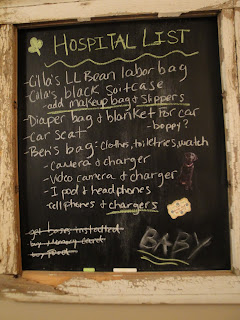 HOSPITAL LIST
- Cilla's LL Bean labor bag
- Cilla's black suitcase
- add makeup bag & slippers
- Diaper bag & blanket for car
- car seat
- boppy?
- Ben's bag: clothes, toiletries, watch
- camera & charger
- Video camera & charger
- I pod & headphones
cell phones & chargers
get bases installed
buy memory card
buy food
BABY